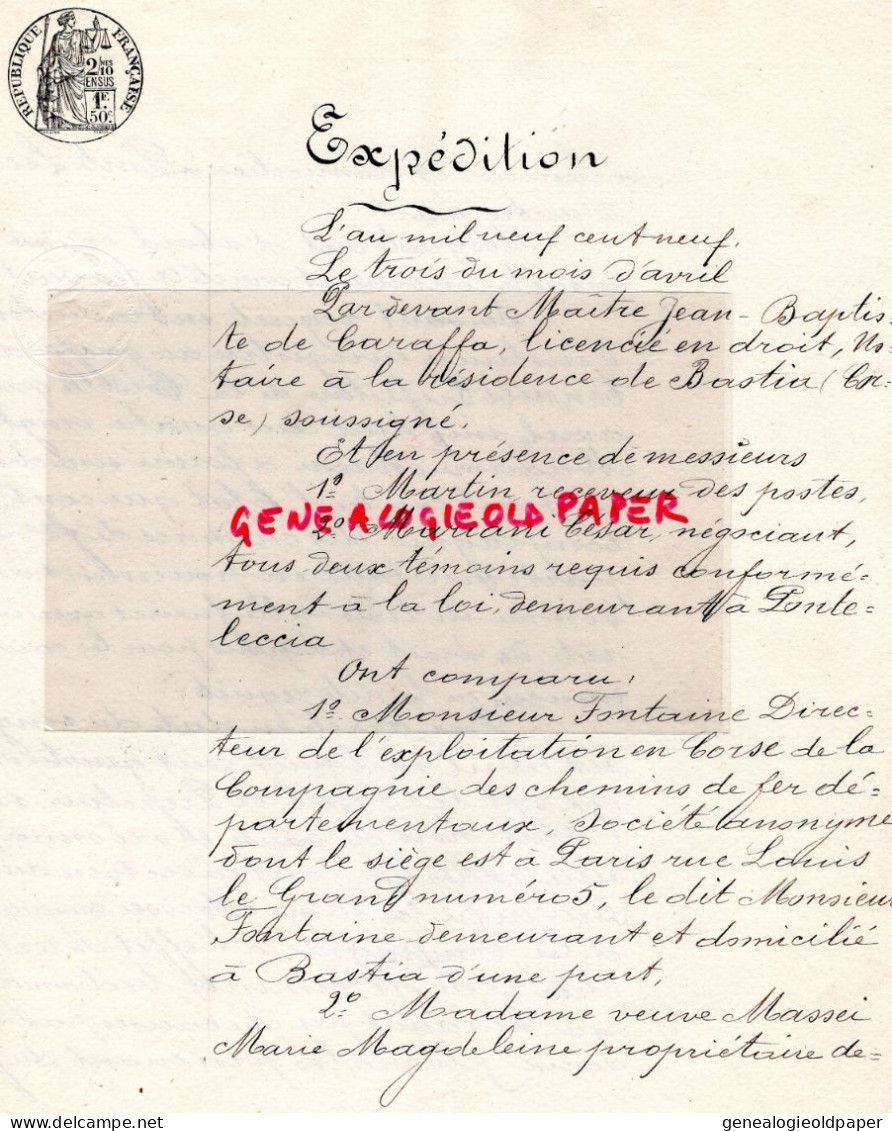 RÉPUBLIQUE FRANÇAISE
2/10
EN SUS
1F.
50c.
Expédition
L'an mil neuf cent neuf.
Le trois du mois d'avril
Par devant Maître Jean-Baptis-
te de Caraffa, licencié en droit, No-
taire à la résidence de Bastia (Cor-
se) soussigné.
Et en présence de messieurs
1º Martin receveur des postes,
GENEALOGIEOLD PAPER
2º Mariani César, négociant,
tous deux témoins requis conformé-
ment à la loi, demeurant à Ponte-
leccia
Ont comparu,
1º Monsieur Fontaine Direc-
teur de l'exploitation en Corse de la
Compagnie des chemins de fer dé-
partementaux, Société anonyme
dont le siège est à Paris rue Louis
le Grand numéro 5, le dit Monsieur
Fontaine demeurant et domicilié
à Bastia d'une part,
2º Madame veuve Massei
Marie Magdeleine propriétaire de-
delcampe.net
genealogieoldpaper